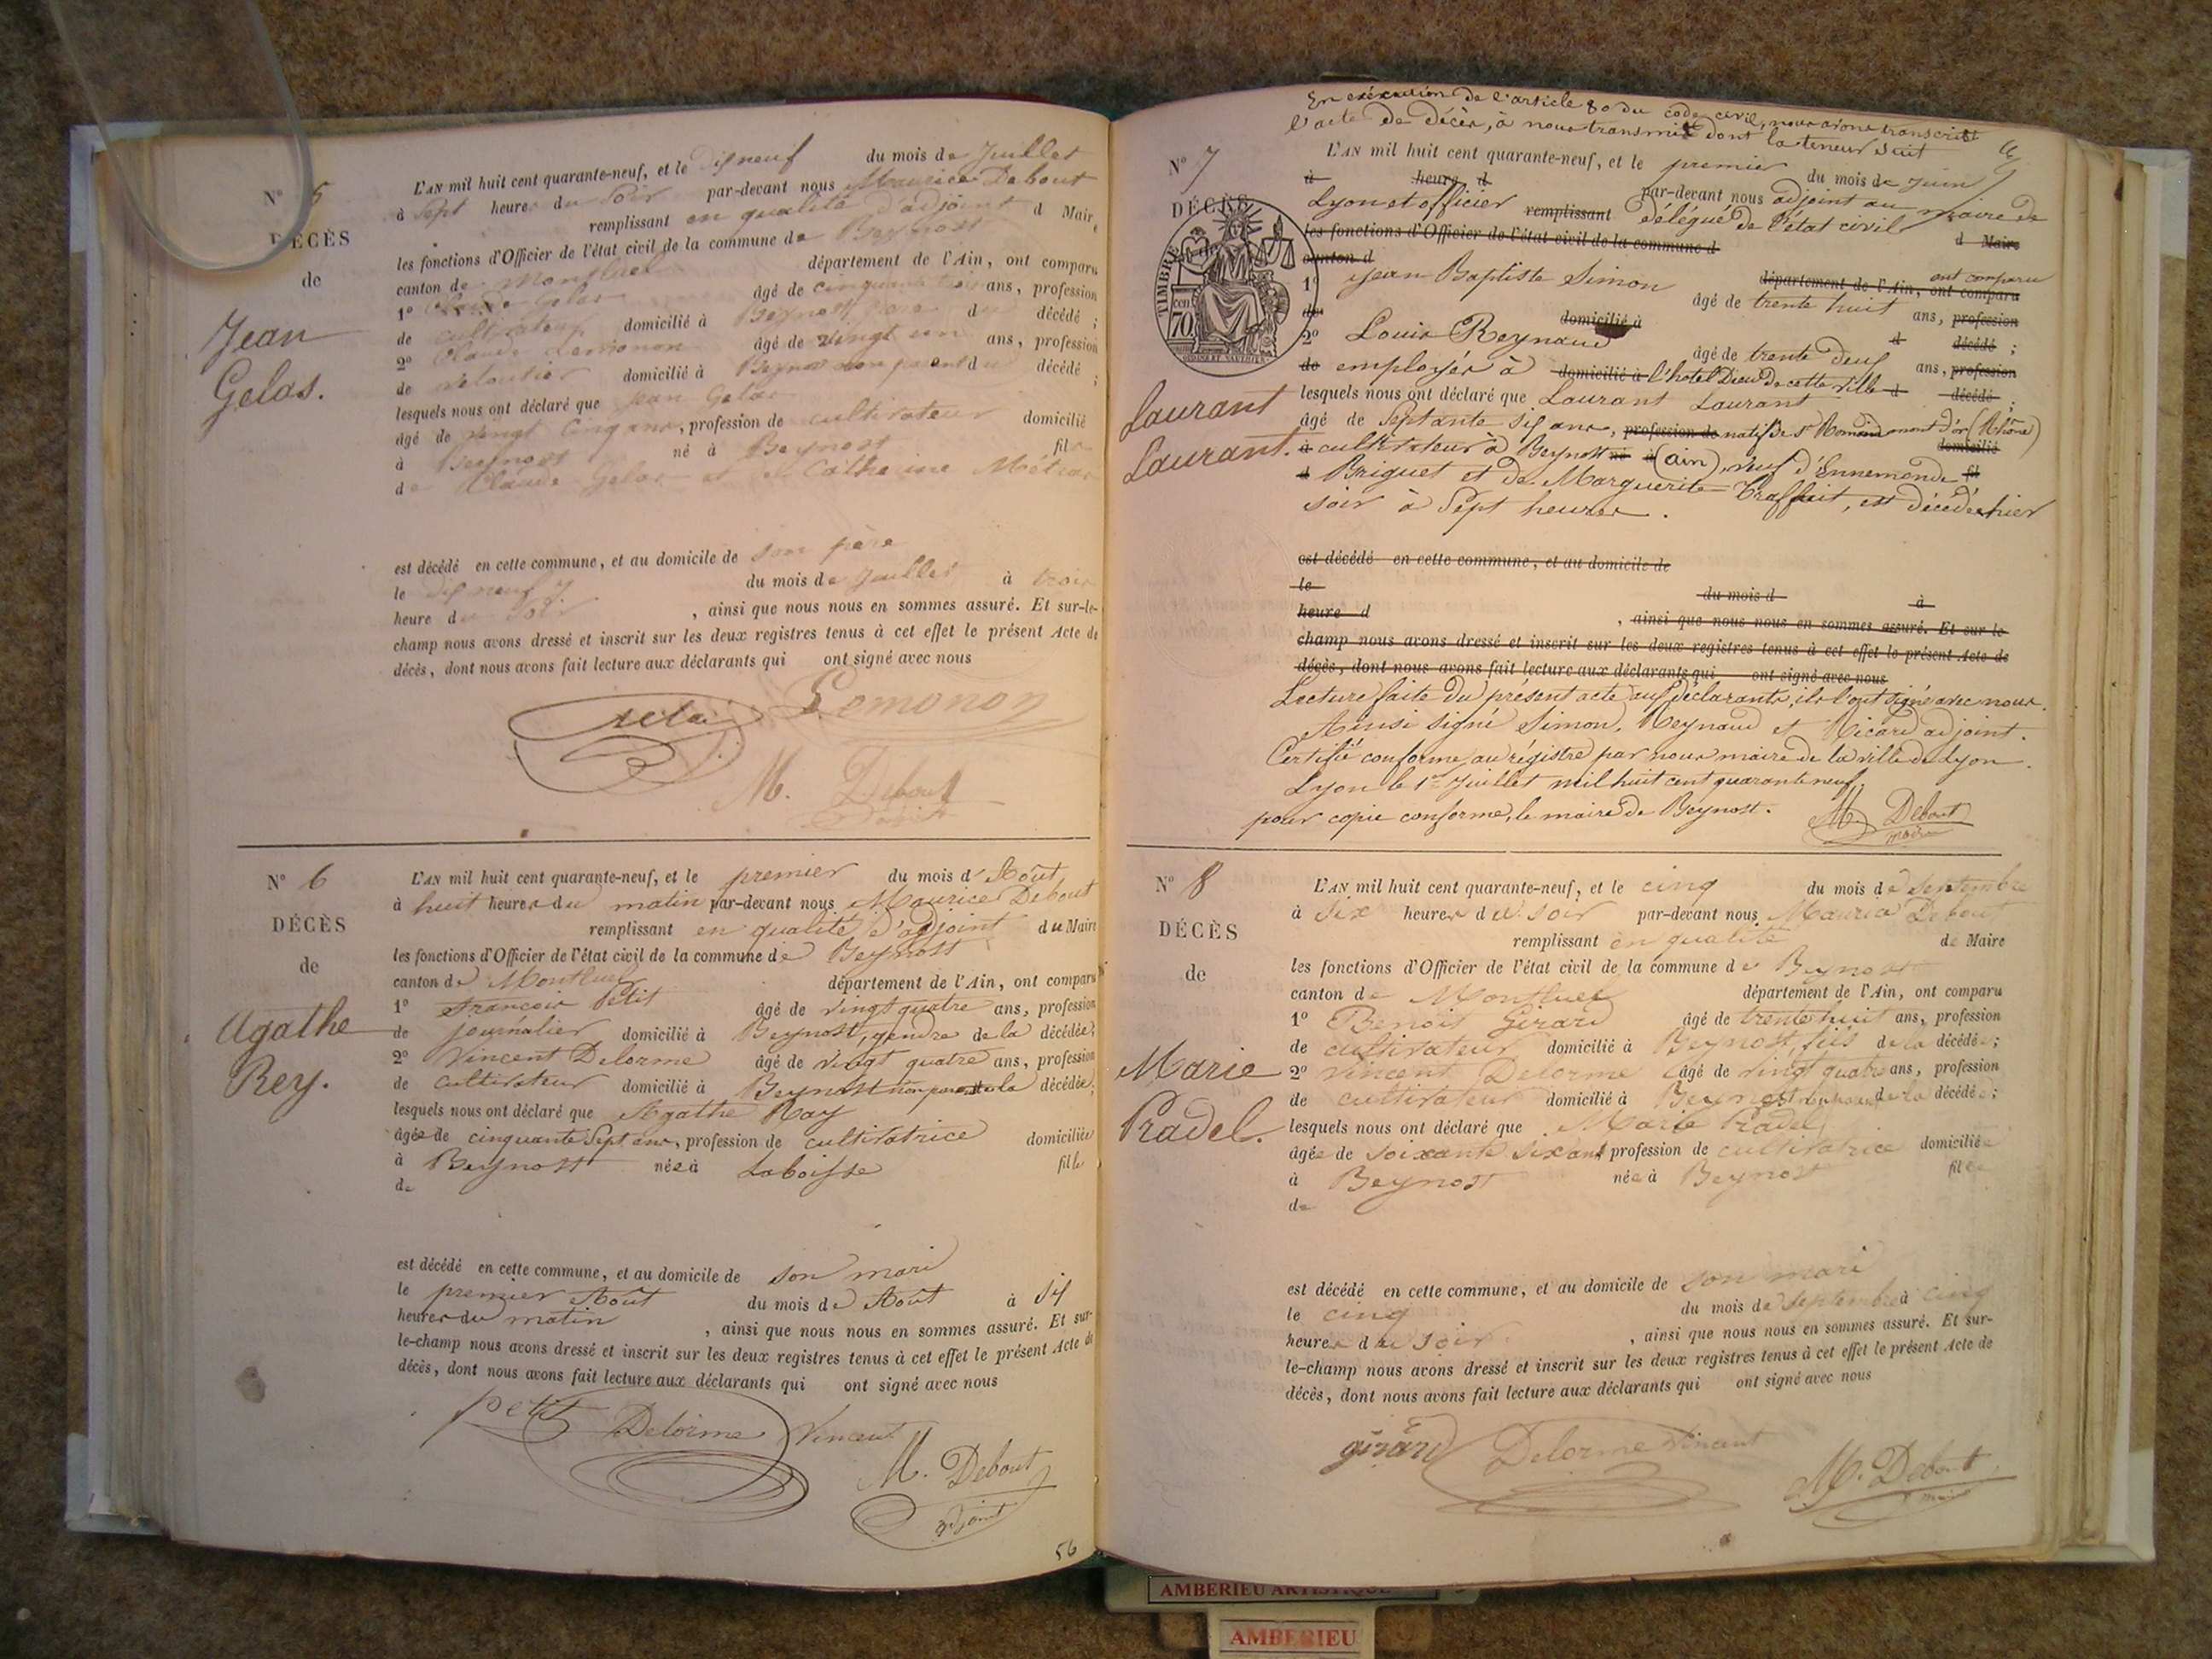 N° 5
DÉCÈS
de
Jean
Gelas.
L'AN mil huit cent quarante-neuf, et le dix neuf du mois de Juillet
à Sept heures du Soir par-devant nous Maurice Debout
remplissant en qualité d'adjoint d Maire
les fonctions d'Officier de l'état civil de la commune de Beynost
canton de Montluel département de l'Ain, ont comparu
1° Claude Gelas âgé de cinquante trois ans, profession
de cultivateur domicilié à Beynost père du décédé ;
2° Claude Lemonon âgé de vingt un ans, profession
de domicilié à Beynost non parent du décédé ;
lesquels nous ont déclaré que Jean Gelas
âgé de vingt cinq ans, profession de cultivateur domicilié
à Beynost né à Beynost fils
de Claude Gelas et de Catherine Métras
est décédé en cette commune, et au domicile de son père
le dix neuf du mois de Juillet à trois
heure du Soir, ainsi que nous nous en sommes assuré. Et sur-le-
champ nous avons dressé et inscrit sur les deux registres tenus à cet effet le présent Acte de
décès, dont nous avons fait lecture aux déclarants qui ont signé avec nous
Gelas Lemonon
M. Debout
adjoint
N° 6
DÉCÈS
de
Agathe
Rey.
L'AN mil huit cent quarante-neuf, et le premier du mois d'Août
à huit heures du matin par-devant nous Maurice Debout
remplissant en qualité d'adjoint du Maire
les fonctions d'Officier de l'état civil de la commune de Beynost
canton de Montluel département de l'Ain, ont comparu
1° François Petit âgé de vingt quatre ans, profession
de journalier domicilié à Beynost, gendre de la décédée ;
2° Vincent Delorme âgé de vingt quatre ans, profession
de cultivateur domicilié à Beynost non parent de la décédée ;
lesquels nous ont déclaré que Agathe Ray
âgée de cinquante Sept ans, profession de cultivatrice domiciliée
à Beynost née à Laboisse fille
de
est décédé en cette commune, et au domicile de son mari
le premier Août du mois de Août à Six
heures du matin, ainsi que nous nous en sommes assuré. Et sur-
le-champ nous avons dressé et inscrit sur les deux registres tenus à cet effet le présent Acte de
décès, dont nous avons fait lecture aux déclarants qui ont signé avec nous
petit Delorme Vincent
M. Debout
adjoint
56
En exécution de l'article 80 du code civil, nous avons transcrit
l'acte de décès, à nous transmis dont la teneur suit
N° 7
DÉCÈS
de
TIMBRE
70
Laurant
Laurant.
L'AN mil huit cent quarante-neuf, et le premier du mois de Juin
à heure d par-devant nous adjoint au maire de
Lyon et officier remplissant délégué de l'état civil d Maire
les fonctions d'Officier de l'état civil de la commune d
canton d département de l'Ain, ont comparu ont comparu
1° Jean Baptiste Simon âgé de trente huit ans, profession
de domicilié à d décédé ;
2° Louis Reynaud âgé de trente deux ans, profession
de employés à domicilié à l'hotel Dieu de cette ville d décédé ;
lesquels nous ont déclaré que Laurant Laurant
âgé de Septante Six ans, profession de natif de St Romain mont d'or (Rhône) domicilié
à cultivateur à Beynost né à (ain), veuf d'Ennemonde fil
d Briguet et de Marguerite Traffait, est décédé hier
soir à Sept heures.
est décédé en cette commune, et au domicile de
le du mois d à
heure d , ainsi que nous nous en sommes assuré. Et sur-le-
champ nous avons dressé et inscrit sur les deux registres tenus à cet effet le présent Acte de
décès, dont nous avons fait lecture aux déclarants qui ont signé avec nous
Lecture faite du présent acte aux déclarants, ils l'ont signé avec nous.
Ainsi signé Simon, Reynaud et Ricard adjoint.
Certifié conforme au régistre par nous maire de la ville de Lyon.
Lyon le 1er Juillet mil huit cent quarante neuf,
pour copie conforme, le maire de Beynost.
M. Debout
maire
N° 8
DÉCÈS
de
Marie
Pradel.
L'AN mil huit cent quarante-neuf, et le cinq du mois de Septembre
à six heures du soir par-devant nous Maurice Debout
remplissant en qualité de Maire
les fonctions d'Officier de l'état civil de la commune de Beynost
canton de Montluel département de l'Ain, ont comparu
1° Benoit Girard âgé de trente huit ans, profession
de cultivateur domicilié à Beynost, fils de la décédée ;
2° Vincent Delorme âgé de vingt quatre ans, profession
de cultivateur domicilié à Beynost non parent de la décédée ;
lesquels nous ont déclaré que Marie Pradel
âgée de soixante six ans profession de cultivatrice domiciliée
à Beynost née à Beynost fille
de
est décédé en cette commune, et au domicile de son mari
le cinq du mois de Septembre à cinq
heures du soir, ainsi que nous nous en sommes assuré. Et sur-
le-champ nous avons dressé et inscrit sur les deux registres tenus à cet effet le présent Acte de
décès, dont nous avons fait lecture aux déclarants qui ont signé avec nous
girard Delorme Vincent
M. Debout
maire
AMBERIEU ARTISTIQUE
AMBERIEU